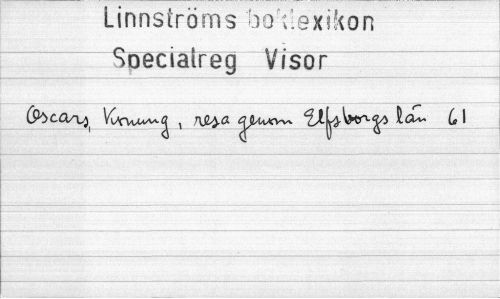 Linnströms boklexikon
Specialreg Visor
Oscars, Konung, resa genom Elfsborgs län 61